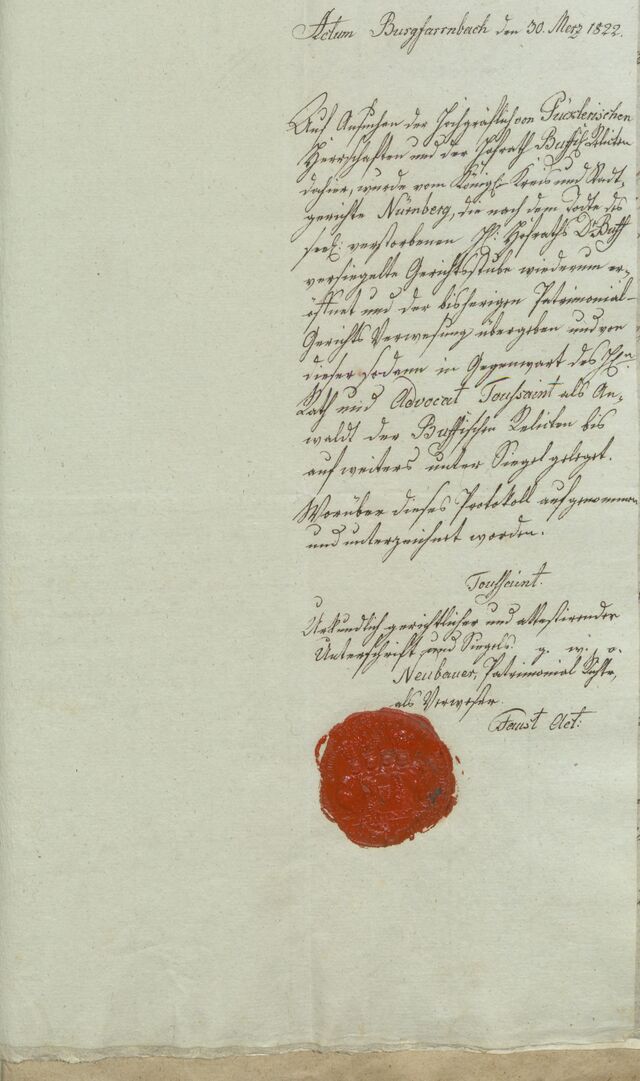 Actum Burgfarrnbach den 30. Merz 1822.
Auf Ansuchen der Hochgräflich von Pücklerischen
Herrschaften und der Hofrath Buffisch. Relicten
dahier, wurde vom Königl. Kreis und Stadt-
gerichte Nürnberg, die nach dem Todte des
seel: verstorbenen H: Hofraths Dr Buff
versiegelte Gerichtsstube wiederum er-
öffnet und der bisherigen Patrimonial-
Gerichts Verwesung übergeben und von
dieser sodann in Gegenwart des Hrn
Rath und Advocat Toussaint als An-
waldt der Buffischen Relicten bis
auf weiters unter Siegel geleget.
Worüber dieses Protokoll aufgenommen
und unterzeichnet worden.
Toussaint.
Urkundlich gerichtlicher und attestirender
Unterschrift und Siegels. g. w. o.
Neubauer, Patrimonial Rchtr,
als Verweser.
Faust Act: